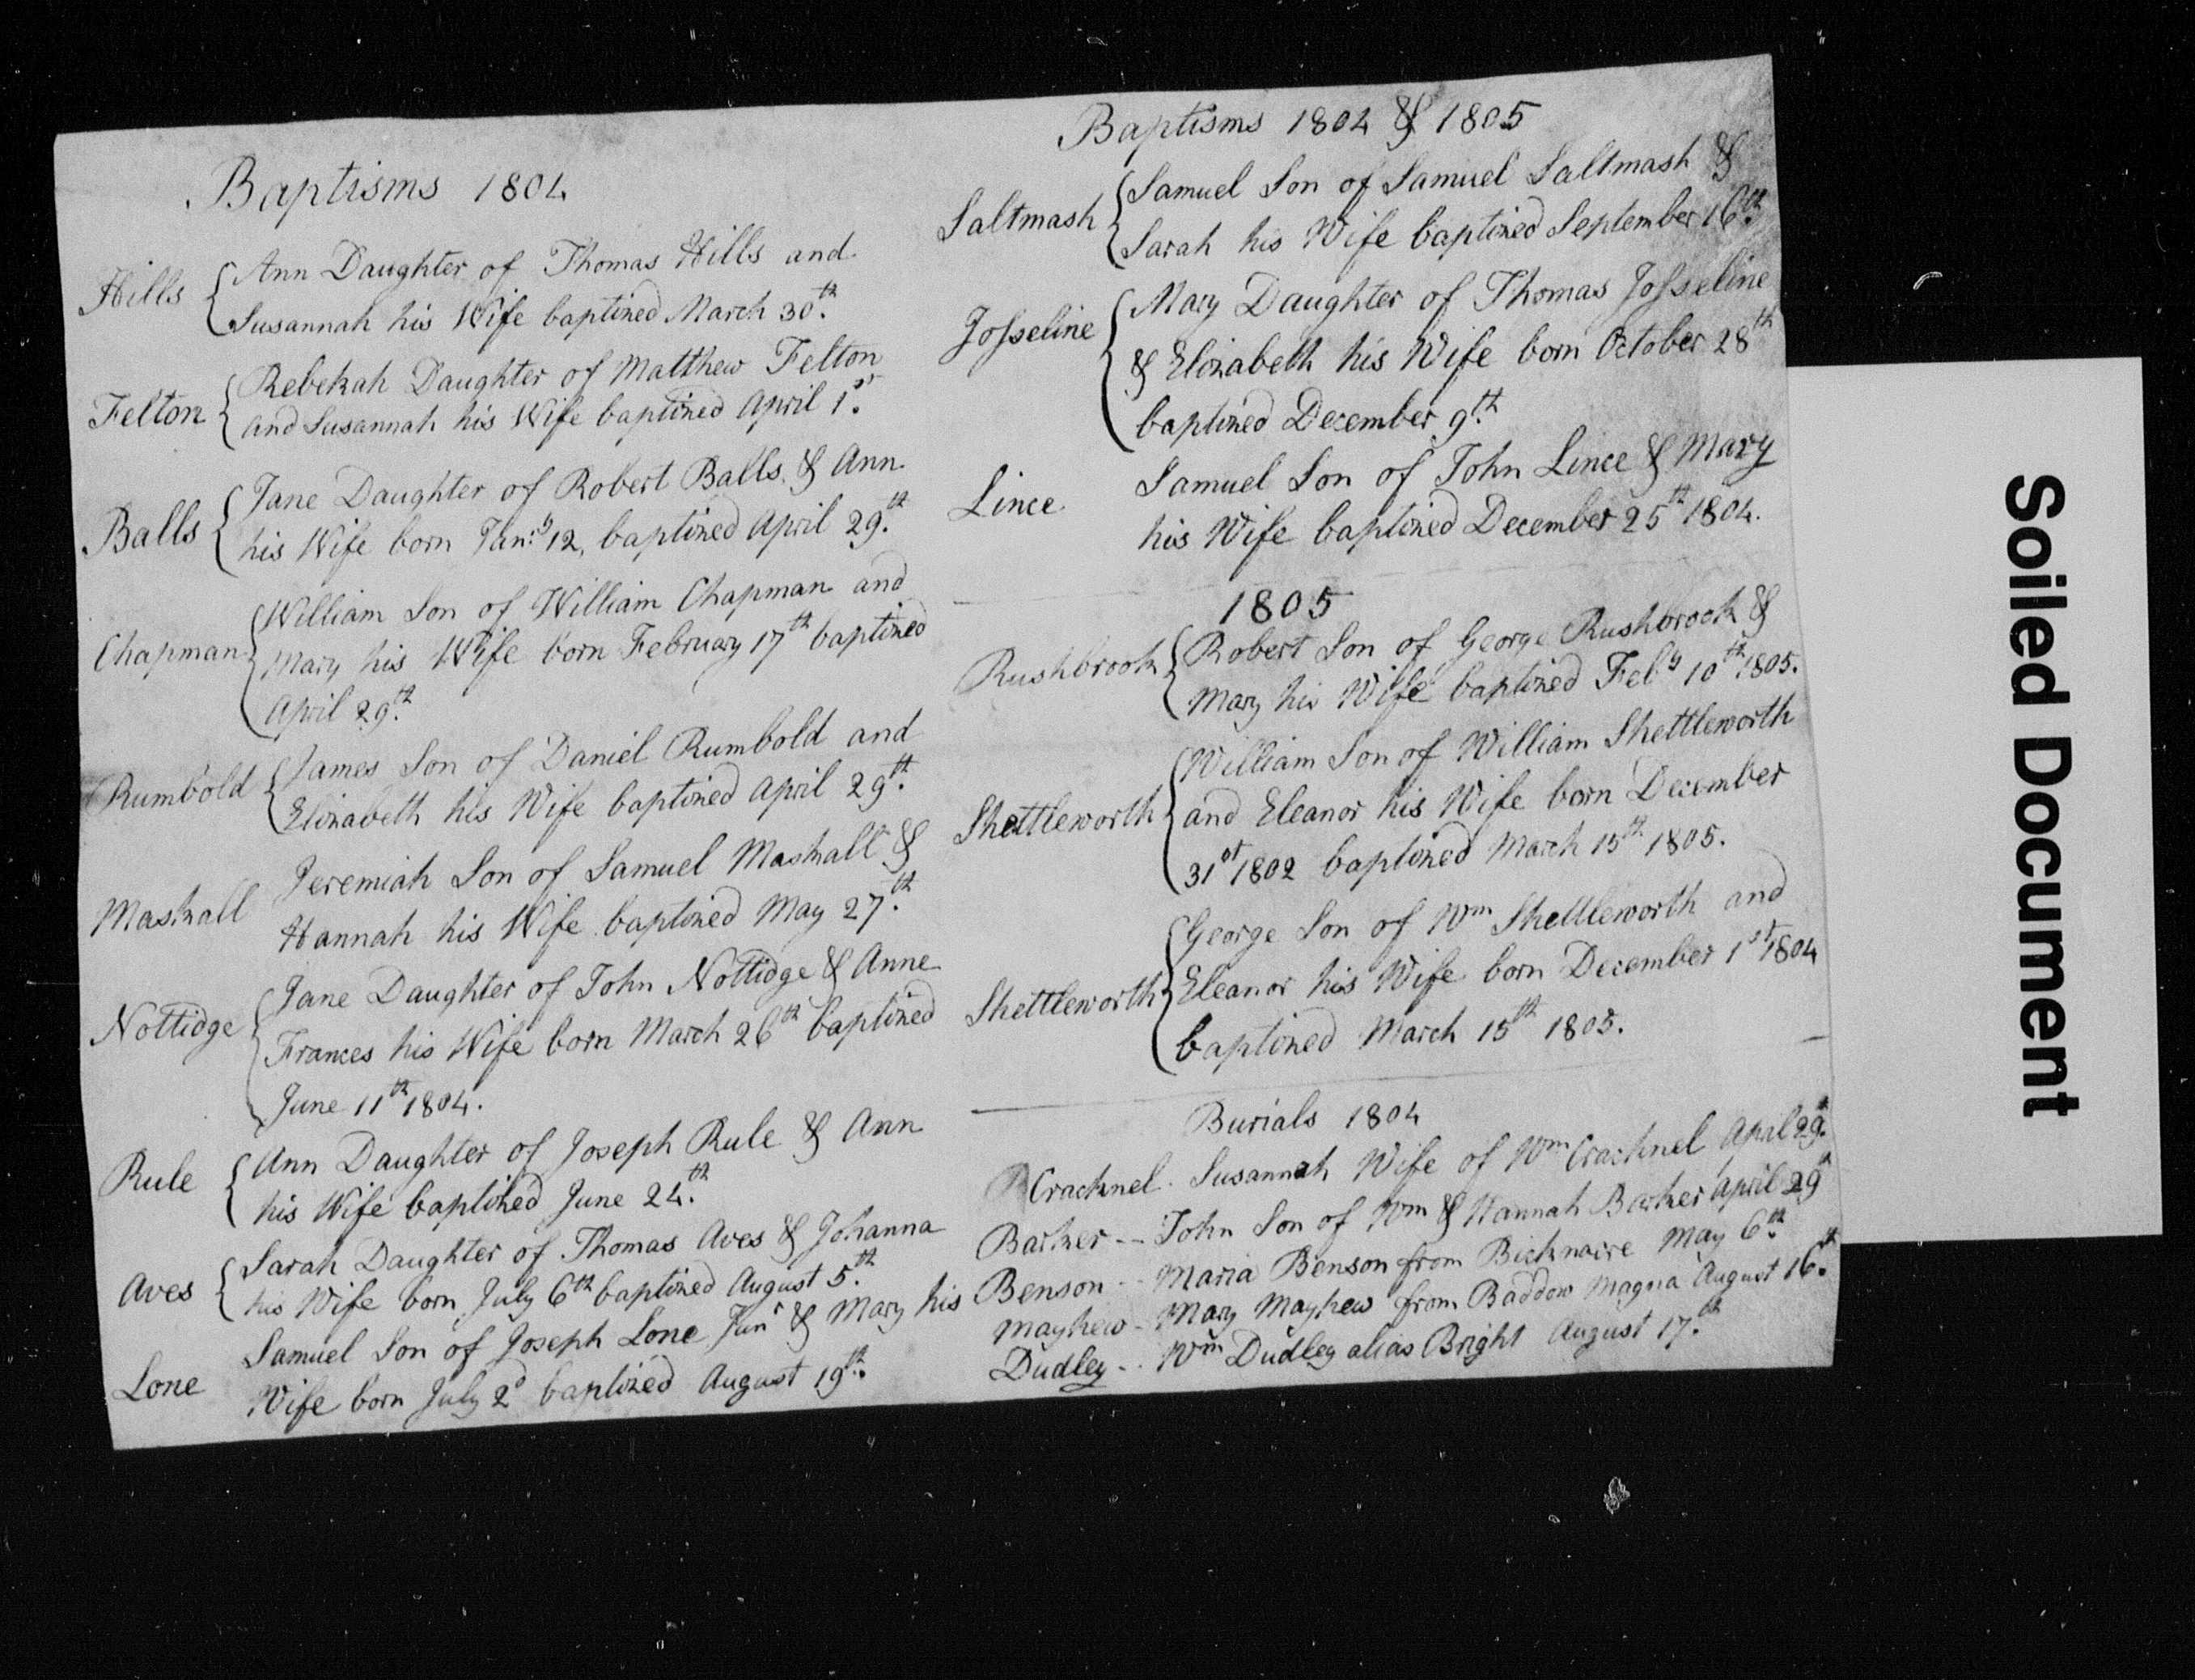 Baptisms 1804
Hills
Ann Daughter of Thomas Hills and
Susannah his Wife baptized March 30th.
Felton
Rebekah Daughter of Matthew Felton
and Susannah his Wife baptized April 1st.
Balls
Jane Daughter of Robert Balls & Ann
his Wife born Jany. 12, baptized April 29th.
Chapman
William Son of William Chapman and
Mary his Wife born February 17th baptized
April 29th.
Rumbold
James Son of Daniel Rumbold and
Elizabeth his Wife baptized April 29th.
Maskall
Jeremiah Son of Samuel Maskall &
Hannah his Wife baptized May 27th.
Nottidge
Jane Daughter of John Nottidge & Anne
Frances his Wife born March 26th baptized
June 11th 1804.
Rule
Ann Daughter of Joseph Rule & Ann
his Wife baptized June 24th.
Aves
Sarah Daughter of Thomas Aves & Johanna
his Wife born July 6th baptized August 5th.
Lone
Samuel Son of Joseph Lone Junr & Mary his
Wife born July 2d baptized August 19th.
Baptisms 1804 & 1805
Saltmash
Samuel Son of Samuel Saltmash &
Sarah his Wife baptized September 16th.
Josseline
Mary Daughter of Thomas Josseline
& Elizabeth his Wife born October 28th
baptized December 9th.
Lince
Samuel Son of John Lince & Mary
his Wife baptized December 25th 1804.
1805
Rushbrook
Robert Son of George Rushbrook &
Mary his Wife baptized Feby 10th 1805.
Shettleworth
William Son of William Shettleworth
and Eleanor his Wife born December
31st 1802 baptized March 15th 1805.
Shettleworth
George Son of Wm Shettleworth and
Eleanor his Wife born December 1st 1804
baptized March 15th 1805.
Burials 1804
Cracknel. Susannah Wife of Wm Cracknel April 29th.
Barker -- John Son of Wm & Hannah Barker April 29th
Benson -- Maria Benson from Bicknacre May 6th.
Mayhew - Mary Mayhew from Baddow Magna August 16th.
Dudley -- Wm Dudley alias Bright August 17th.
Soiled Document